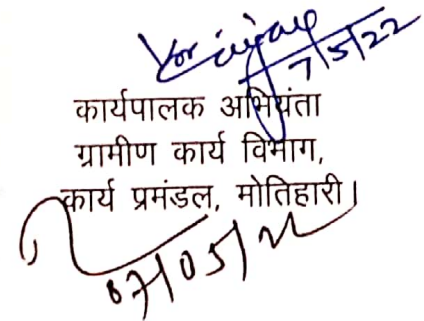 7/5/22
कार्यपालक अभियंता
ग्रामीण कार्य विभाग,
कार्य प्रमंडल, मोतिहारी।
07/05/22